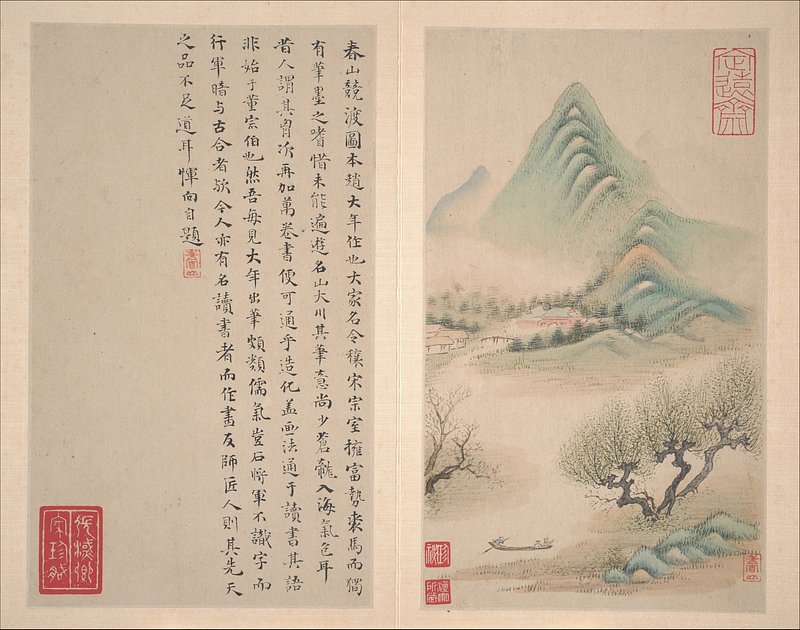 春山競渡圖本趙大年作也大年名令穰宋宗室擁富勢裘馬而獨
有筆墨之嗜惜未能遍遊名山大川其筆意尚少蒼龍入海氣色耳
昔人謂其胷次再加萬卷書便可通乎造化盖画法通于讀書其語
非始于董宗伯也然吾每見大年出筆頗類儒氣豈右將軍不識字而
行軍暗与古合者欤今人亦有名讀書者而作畫反師匠人則其先天
之品不足道耳惲向自題
定遠齋